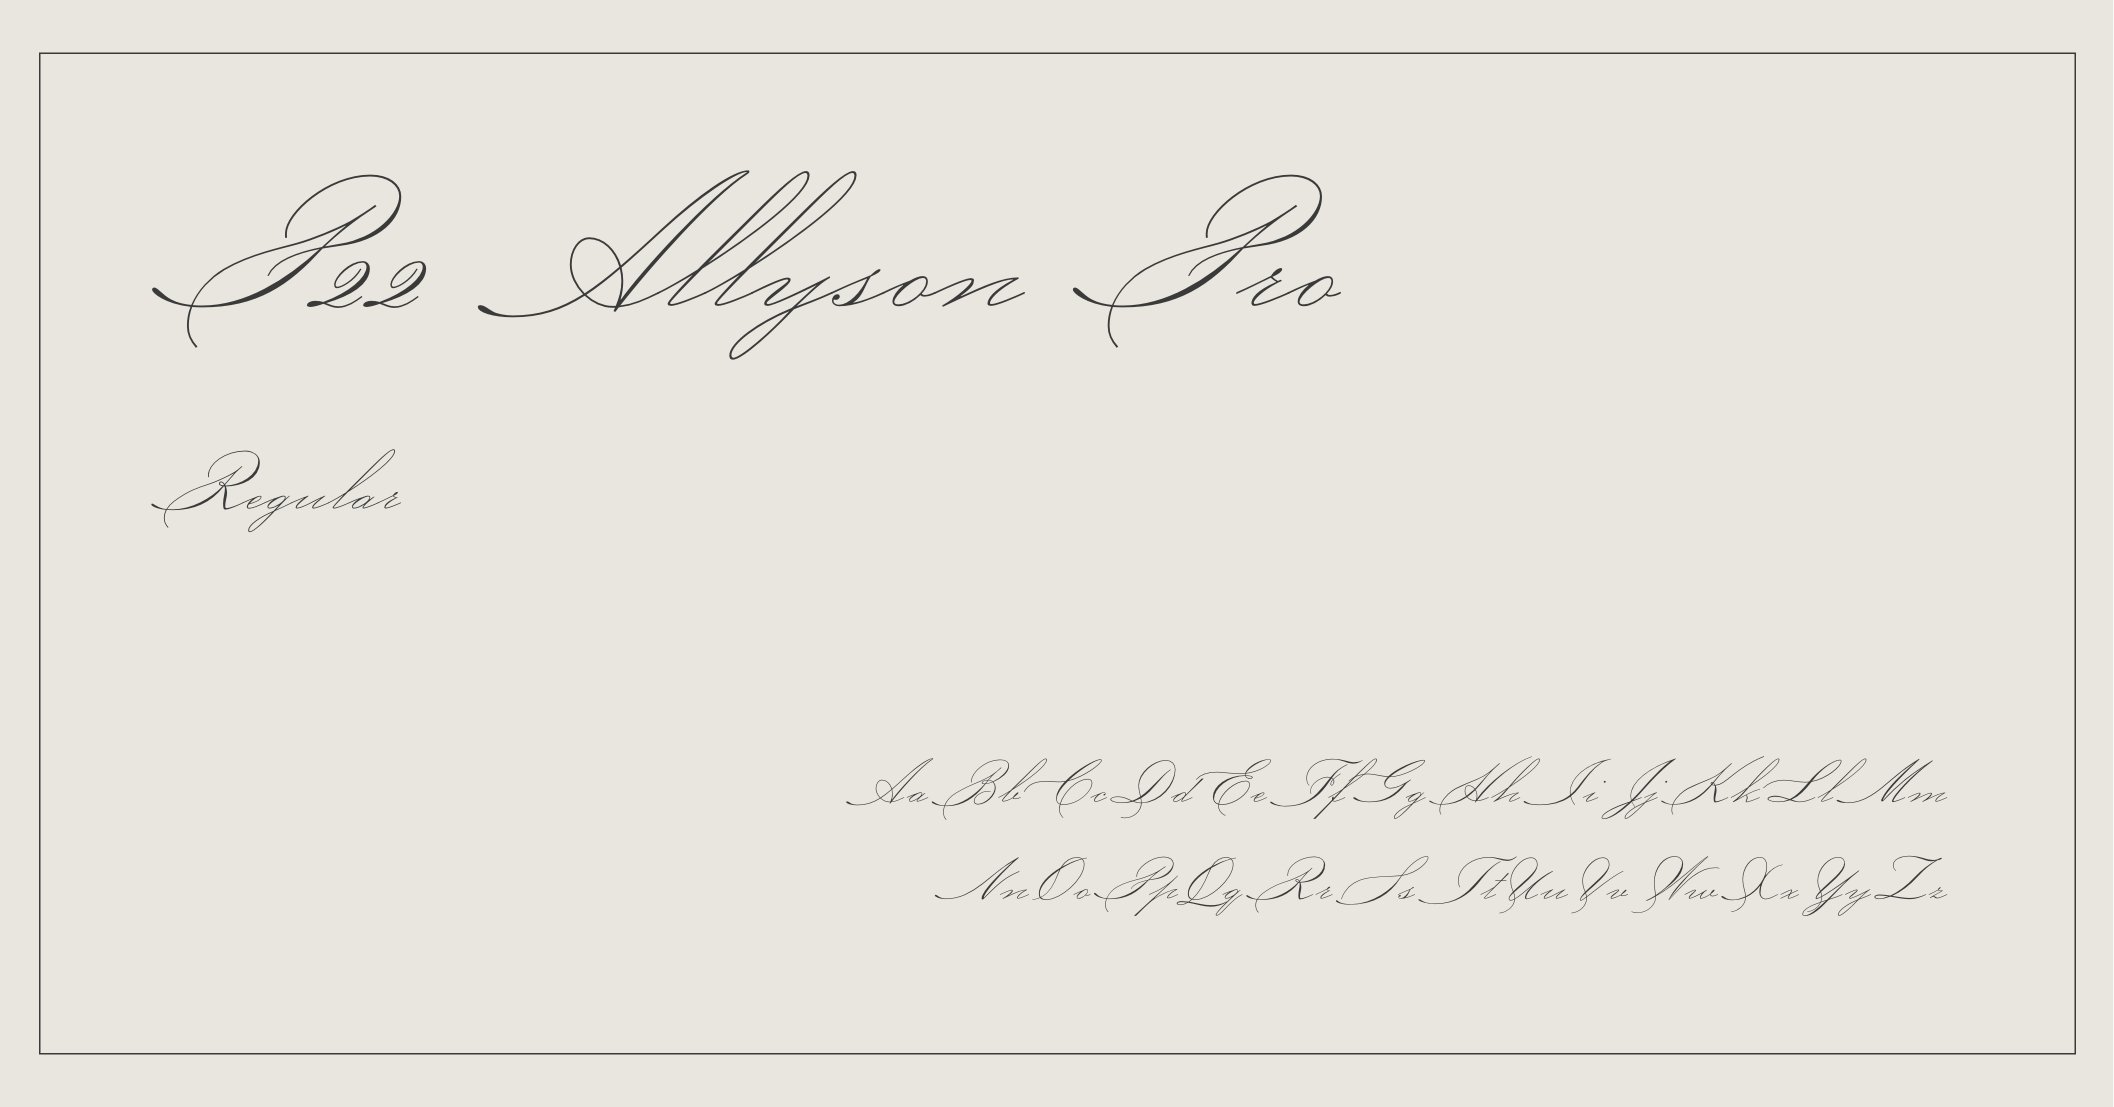 P22 Allyson Pro
Regular
Aa Bb Cc Dd Ee Ff Gg Hh Ii Jj Kk Ll Mm
Nn Oo Pp Qq Rr Ss Tt Uu Vv Ww Xx Yy Zz